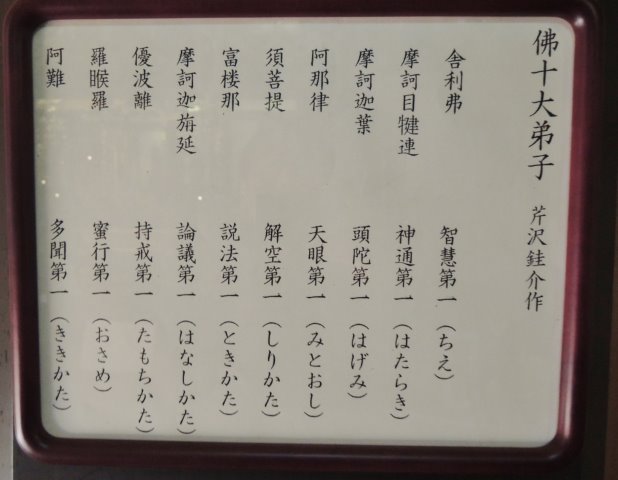 佛十大弟子 芹沢銈介作
舎利弗 智慧第一（ちえ）
摩訶目犍連 神通第一（はたらき）
摩訶迦葉 頭陀第一（はげみ）
阿那律 天眼第一（みとおし）
須菩提 解空第一（しりかた）
富楼那 説法第一（ときかた）
摩訶迦旃延 論議第一（はなしかた）
優波離 持戒第一（たもちかた）
羅睺羅 蜜行第一（おさめ）
阿難 多聞第一（ききかた）